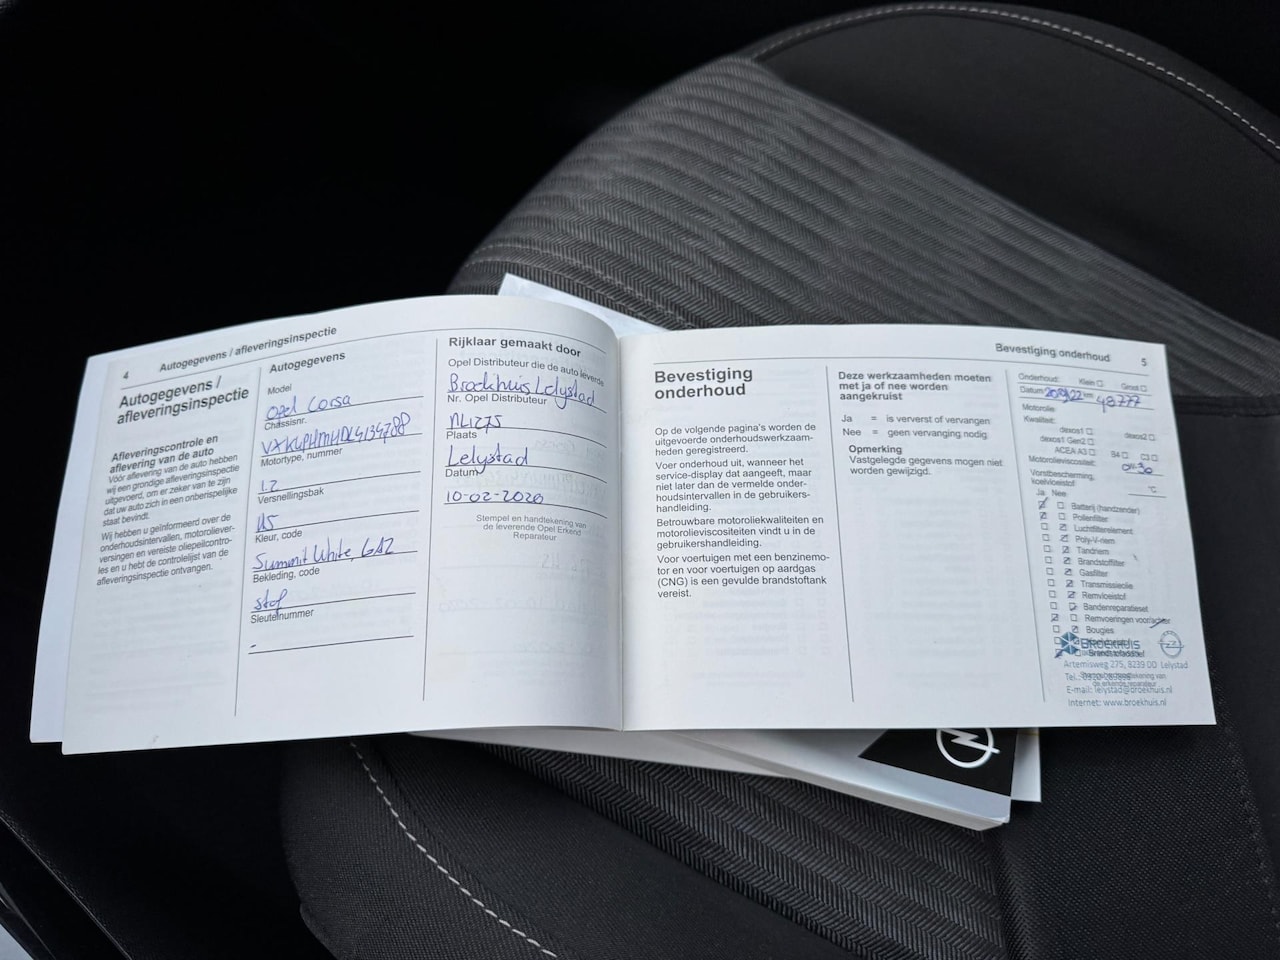 4
Autogegevens / afleveringsinspectie
Autogegevens /
afleveringsinspectie
Afleveringscontrole en
aflevering van de auto
Vóór aflevering van de auto hebben
wij een grondige afleveringsinspectie
uitgevoerd, om er zeker van te zijn
dat uw auto zich in een onberispelijke
staat bevindt.
Wij hebben u geïnformeerd over de
onderhoudsintervallen, motoroliever-
versingen en vereiste oliepeilcontro-
les en u hebt de controlelijst van de
afleveringsinspectie ontvangen.
Autogegevens
Model
Opel Corsa
Chassisnr.
Motortype, nummer
1.2
Versnellingsbak
Kleur, code
Summit White, GAZ
Bekleding, code
stof
Sleutelnummer
-
Rijklaar gemaakt door
Opel Distributeur die de auto leverde
Broekhuis Lelystad
Nr. Opel Distributeur
NL1275
Plaats
Lelystad
Datum
10-02-2020
Stempel en handtekening van
de leverende Opel Erkend
Reparateur
Bevestiging onderhoud
5
Bevestiging
onderhoud
Op de volgende pagina's worden de
uitgevoerde onderhoudswerkzaam-
heden geregistreerd.
Voer onderhoud uit, wanneer het
service-display dat aangeeft, maar
niet later dan de vermelde onder-
houdsintervallen in de gebruikers-
handleiding.
Betrouwbare motoroliekwaliteiten en
motorolieviscositeiten vindt u in de
gebruikershandleiding.
Voor voertuigen met een benzinemo-
tor en voor voertuigen op aardgas
(CNG) is een gevulde brandstoftank
vereist.
Deze werkzaamheden moeten
met ja of nee worden
aangekruist
Ja = is ververst of vervangen
Nee = geen vervanging nodig
Opmerking
Vastgelegde gegevens mogen niet
worden gewijzigd.
Onderhoud: Klein Groot
Datum km 48777
Motorolie
Kwaliteit:
dexos1 dexos2
dexos1 Gen2
ACEA A3 B4 C3
Motorolieviscositeit: 0W-30
Vorstbescherming,
koelvloeistof °C
Ja Nee
Batterij (handzender)
Pollenfilter
Luchtfilterelement
Poly-V-riem
Tandriem
Brandstoffilter
Gasfilter
Transmissieolie
Remvloeistof
Bandenreparatieset
Remvoeringen voor/achter
Bougies
BROEKHUIS
Artemisweg 275, 8239 DD Lelystad
Tel.:
E-mail: lelystad@broekhuis.nl
Internet: www.broekhuis.nl